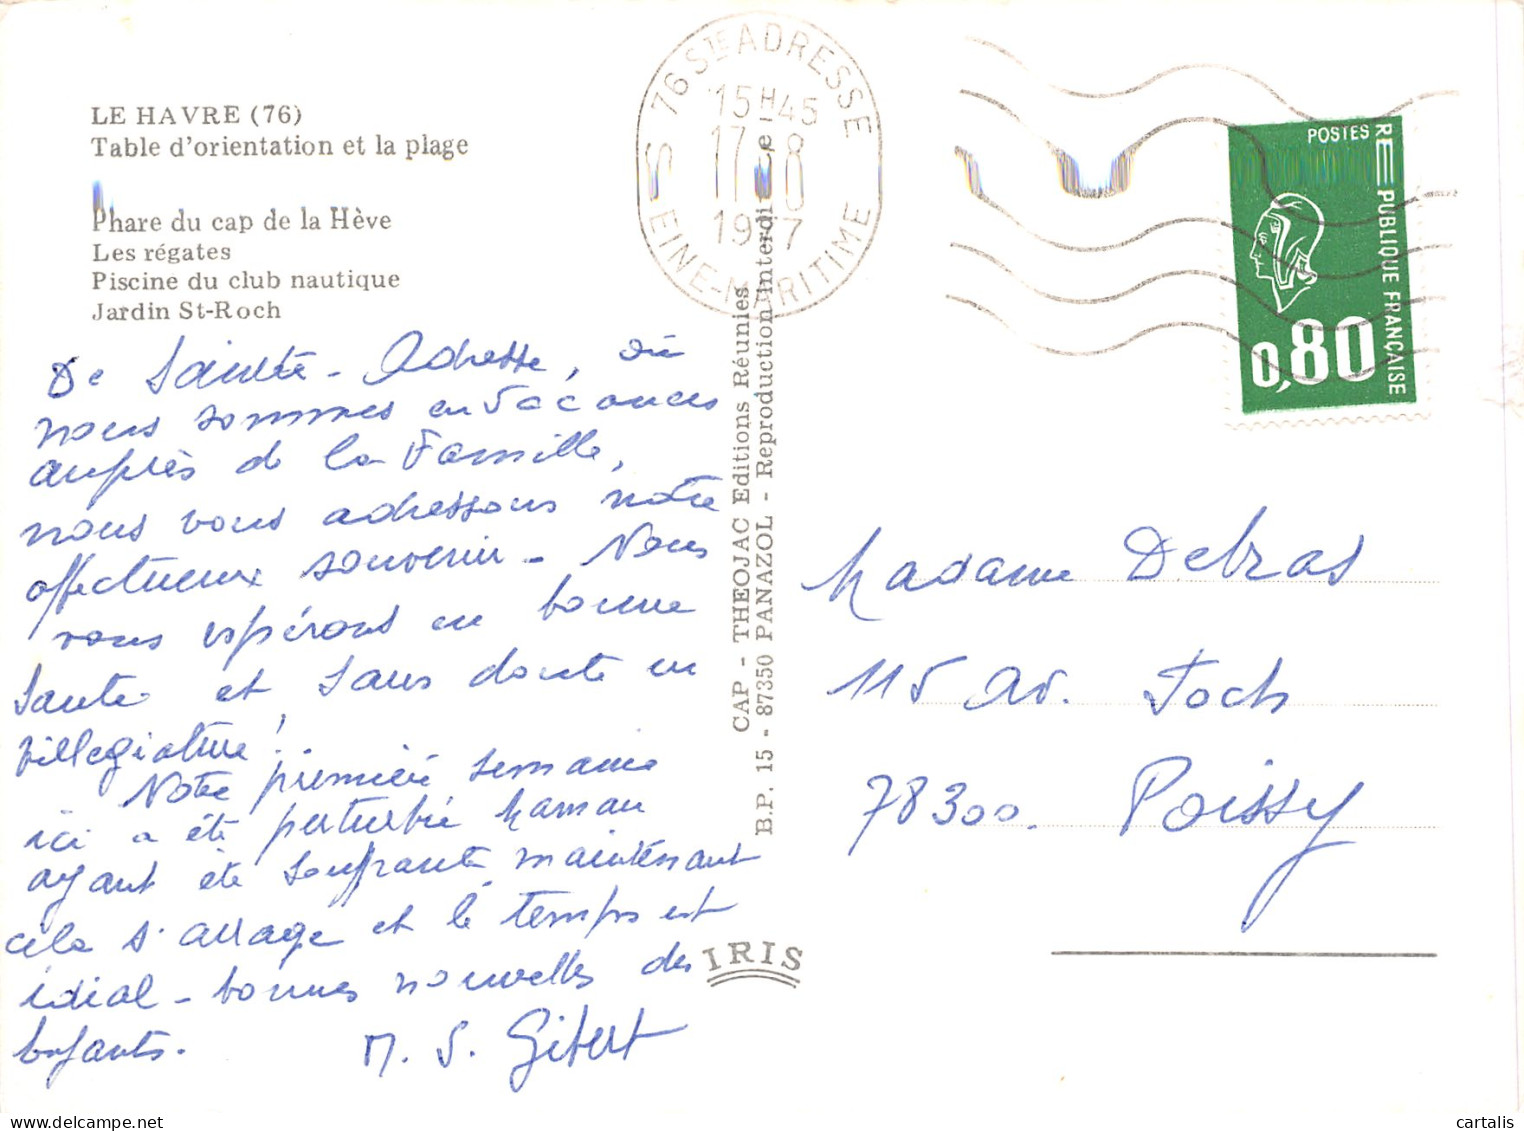 LE HAVRE (76)
Table d'orientation et la plage
Phare du cap de la Hève
Les régates
Piscine du club nautique
Jardin St-Roch
De Sainte-Adresse, où
nous sommes en vacances
auprès de la Famille,
nous vous adressons notre
affectueux souvenir - Nous
vous espérons en bonne
santé et sans doute en
villegiature!
Notre première semaine
ici a été perturbée Maman
ayant été souffrante maintenant
cela s'arrage et le temps est
idial - bonnes nouvelles des
enfants.
M. S. Gibert
76 STE ADRESSE
15H45
17-8
1977
SEINE-MARITIME
CAP - THEOJAC Editions Réunies
B.P. 15 - 87350 PANAZOL - Reproduction Interdite
IRIS
POSTES
REPUBLIQUE FRANÇAISE
0,80
Madame Debras
115 Av. Foch
78300. Poissy
cartalis